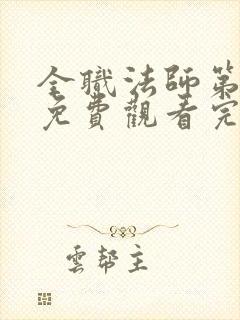 全職法師第
免費觀看完
雲幫主